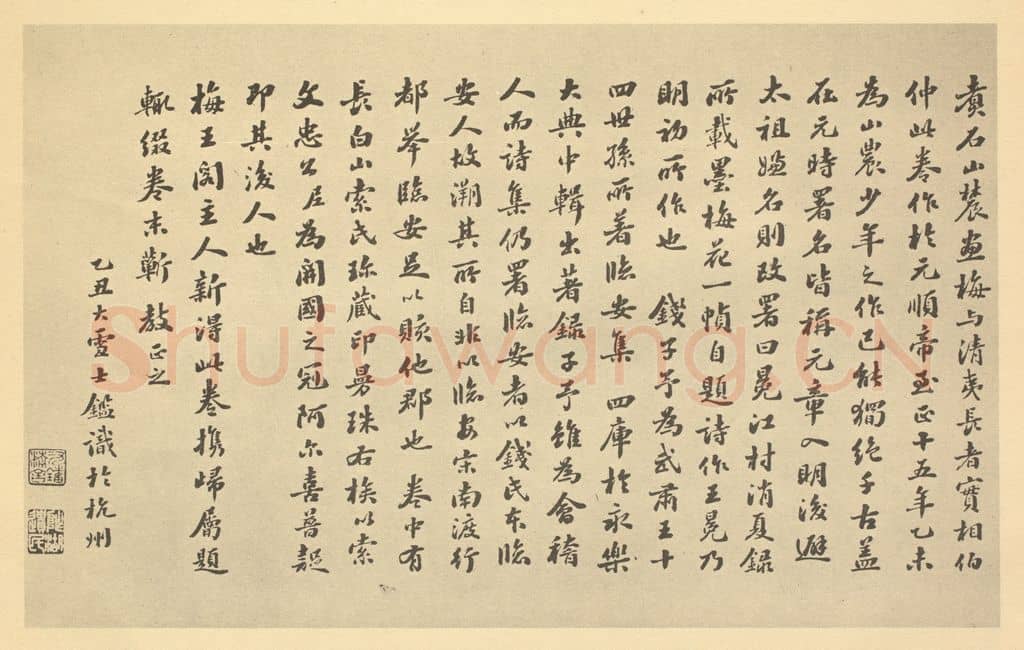 煑石山農畫梅与清夷長者實相伯
仲此卷作於元順帝至正十五年乙未
為山農少年之作已能獨絕千古蓋
在元時署名皆稱元章入明後避
太祖嫌名則改署曰冕江村消夏録
所載墨梅花一幀自題詩作王冕乃
明初所作也 錢子予為武肅王十
四世孫所著臨安集 四庫於永樂
大典中輯出著録子予雖為會稽
人而詩集仍署臨安者以錢氏本臨
安人故溯其所自非以臨安宗南渡行
都舉臨安足以賅他郡也 卷中有
長白山索氏珍蔵印曼殊右族以索
文忠公尼為開國之冠阿尔喜普
即其後人也
梅王閣主人新得此卷携歸屬題
輒綴卷末蘄 教正之
乙丑大雪士鑑識於杭州
Shufawang.CN